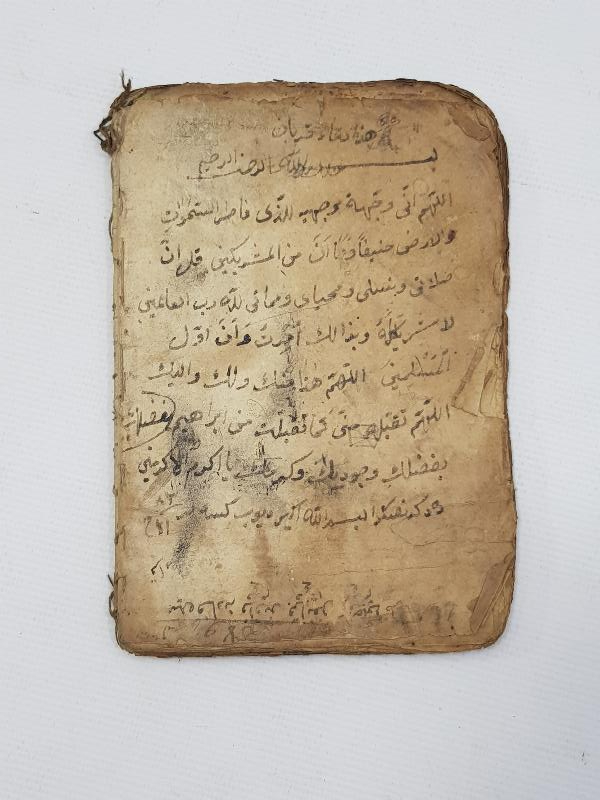 هذا دعاء قربان
بسم الله الرحمن الرحيم
اللهم انى وجهة وجهي للذى فاطر السموات
والارض حنيفاً وما أنَا من المشركين قل انّ
صلاتى ونسكى ومحياى ومماتى للّه رب العالمين
لا شريكَ لهُ وبذالك أُمِرْتُ وَأنَا اوّل
المُسْلِمين اللهمّ هذا منك ولك واليك
اللهمّ تقبله منّى كما تقبلت من ابراهيم بفضلك
بفضلك وجودك وكرمك يا اكرم الاكرمين
بسم الله الله اكبر ديوب